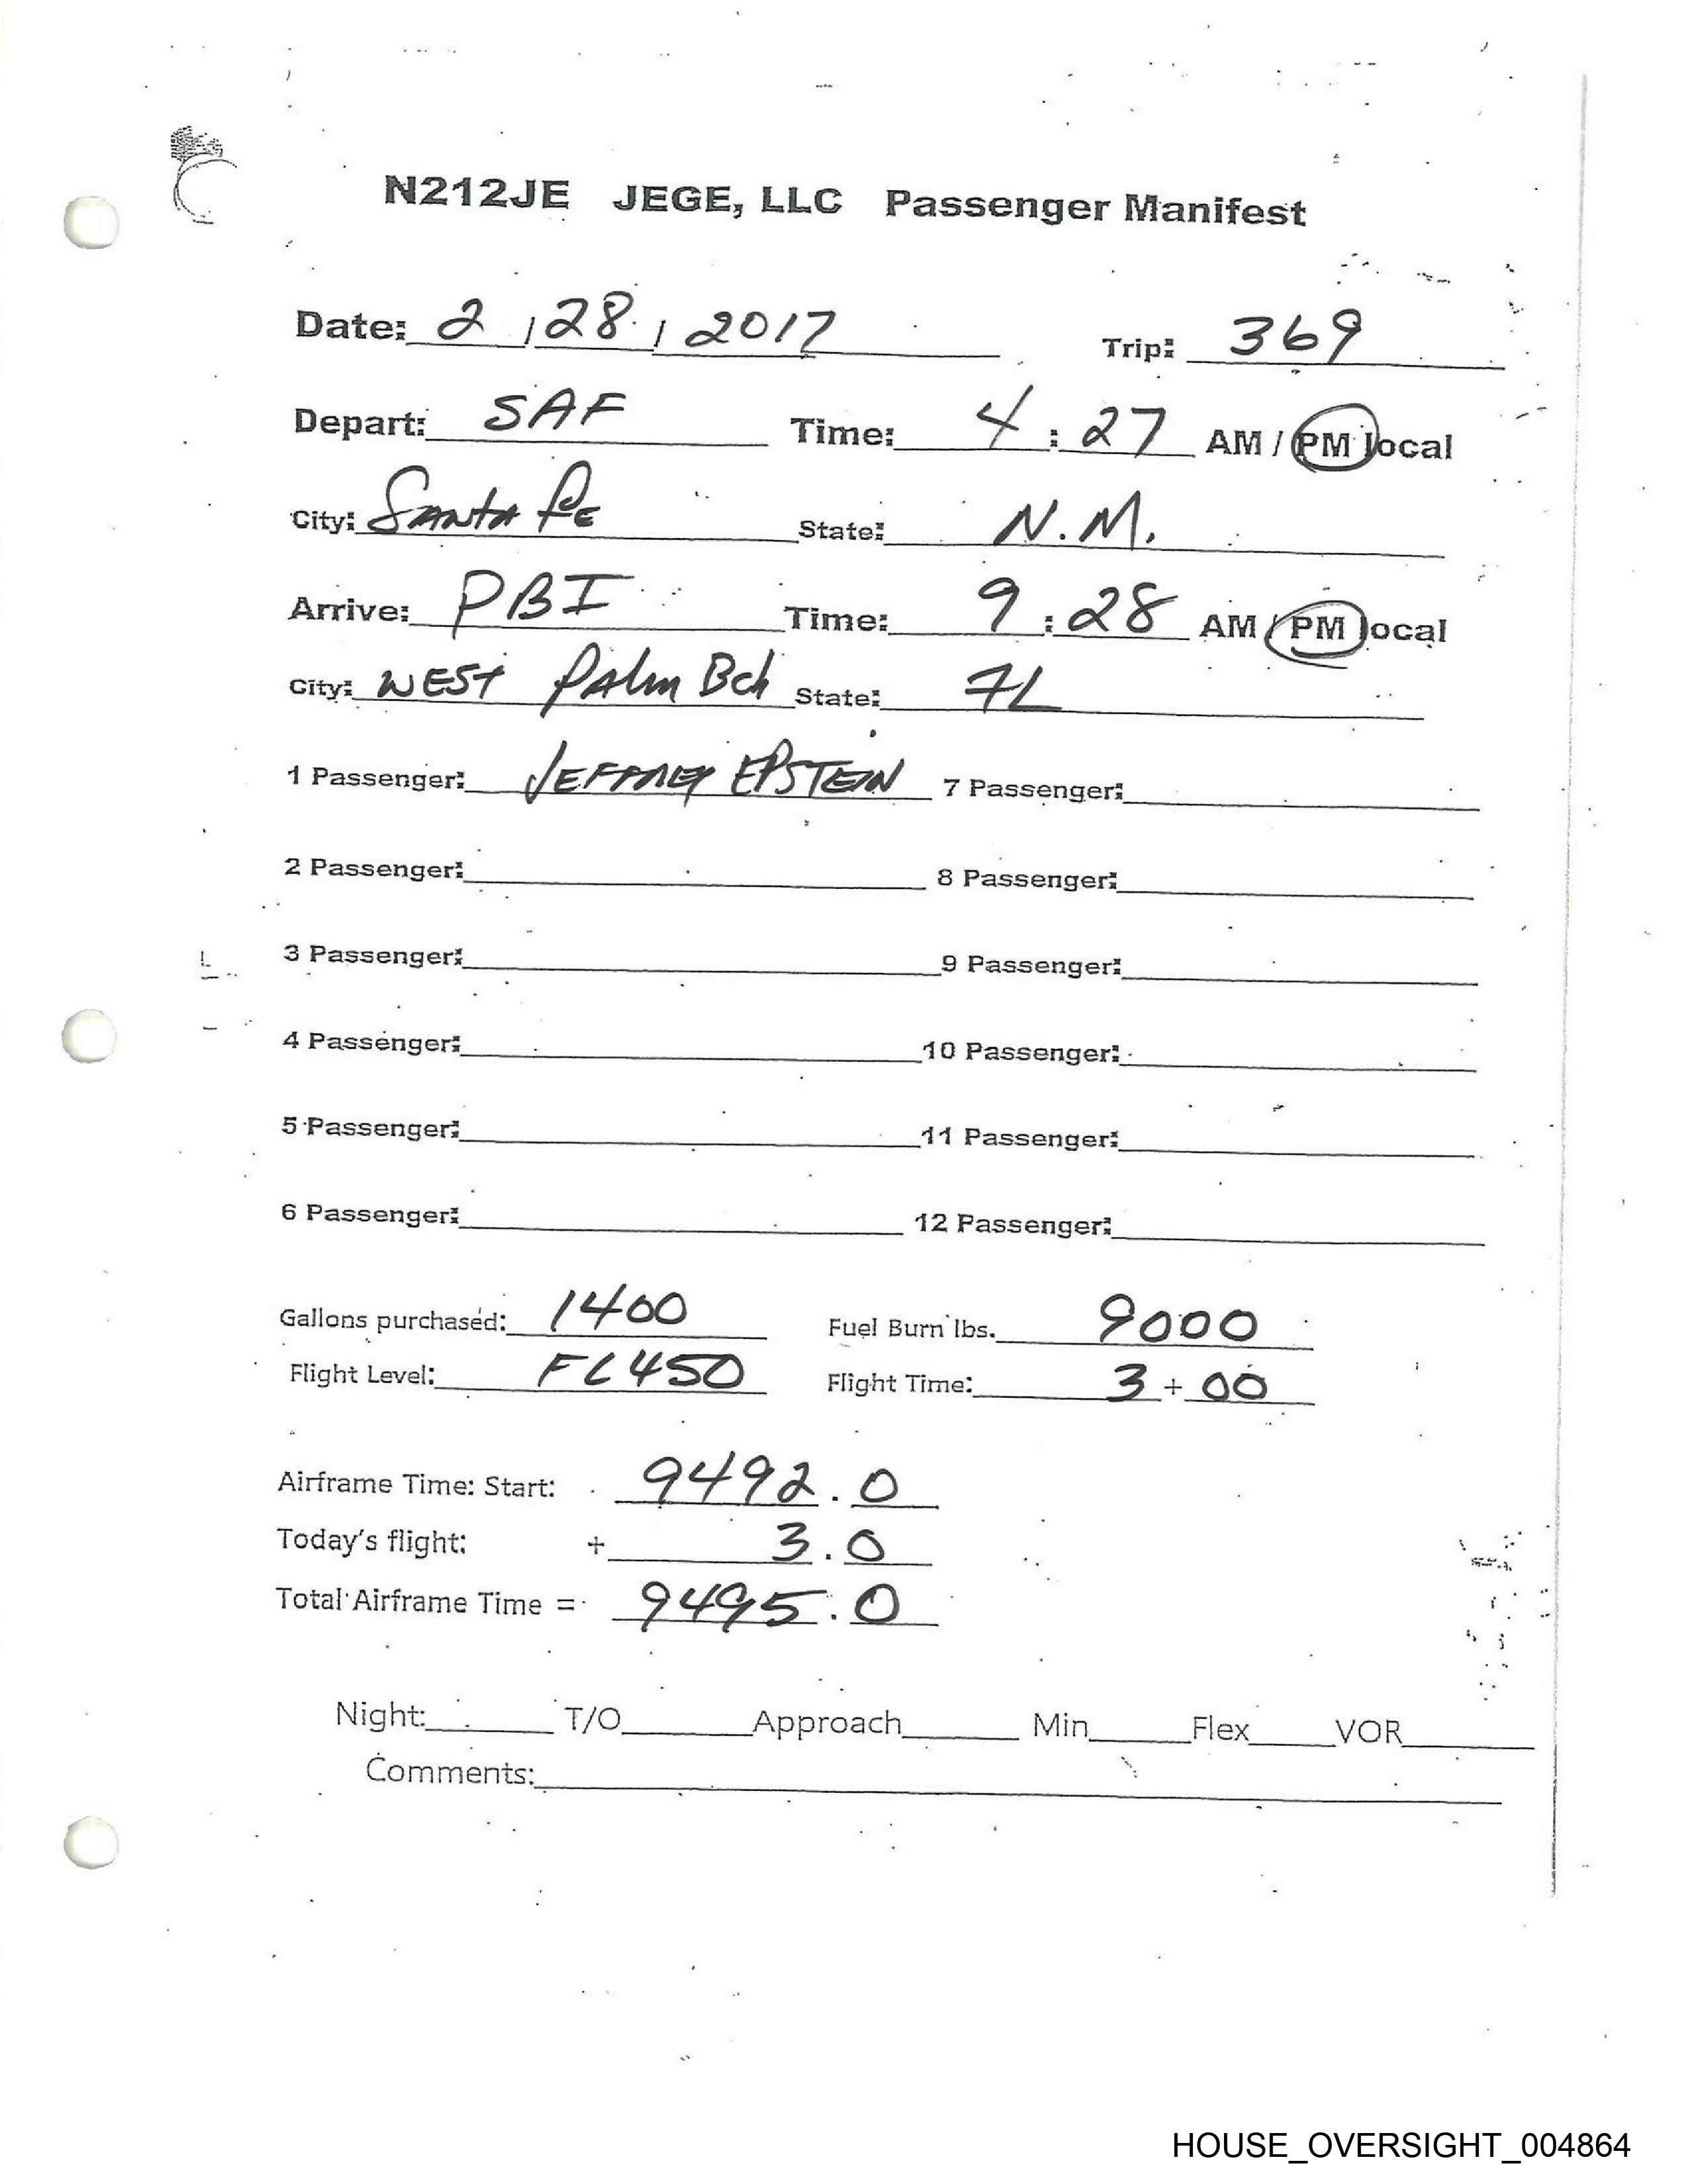 N212JE JEGE, LLC Passenger Manifest
Date: 2 / 28 / 2017 Trip: 369
Depart: SAF Time: 4 : 27 AM / PM local
City: SANTA FE State: N.M.
Arrive: PBI Time: 9 : 28 AM / PM local
City: WEST PALM Bch State: FL
1 Passenger: JEFFREY EPSTEIN 7 Passenger:
2 Passenger: 8 Passenger:
3 Passenger: 9 Passenger:
4 Passenger: 10 Passenger:
5 Passenger: 11 Passenger:
6 Passenger: 12 Passenger:
Gallons purchased: 1400 Fuel Burn lbs. 9000
Flight Level: FL450 Flight Time: 3 + 00
Airframe Time: Start: 9492.0
Today's flight: + 3.0
Total Airframe Time = 9495.0
Night: T/O Approach Min Flex VOR
Comments:
HOUSE_OVERSIGHT_004864